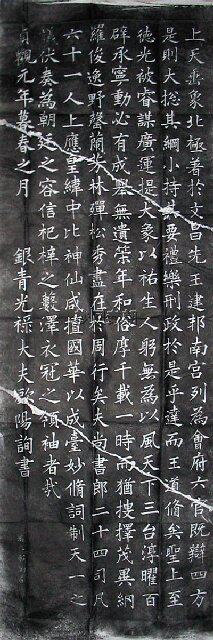 上天垂象北極著於文昌先王建邦南宮列為會府六官既辯四方
是則大揔其綱小持其要禮樂刑政於是乎達而王道備矣聖上至
德光被睿謀廣運提大象以祐生人躬無為以風天下三台淳曜百
辟承寧動必有成舉無遺策年和俗厚千載一時而猶搜擇茂異網
羅俊逸野罄蘭芬林殫松秀盡在於周行矣夫尚書郎二十四司凡
六十一人上應星緯中比神仙咸擅國華以成臺妙脩詞制天一之
議伏奏為朝廷之容信杞梓之藪澤衣冠之領袖者哉
貞觀元年暮春之月 銀青光祿大夫歐陽詢書